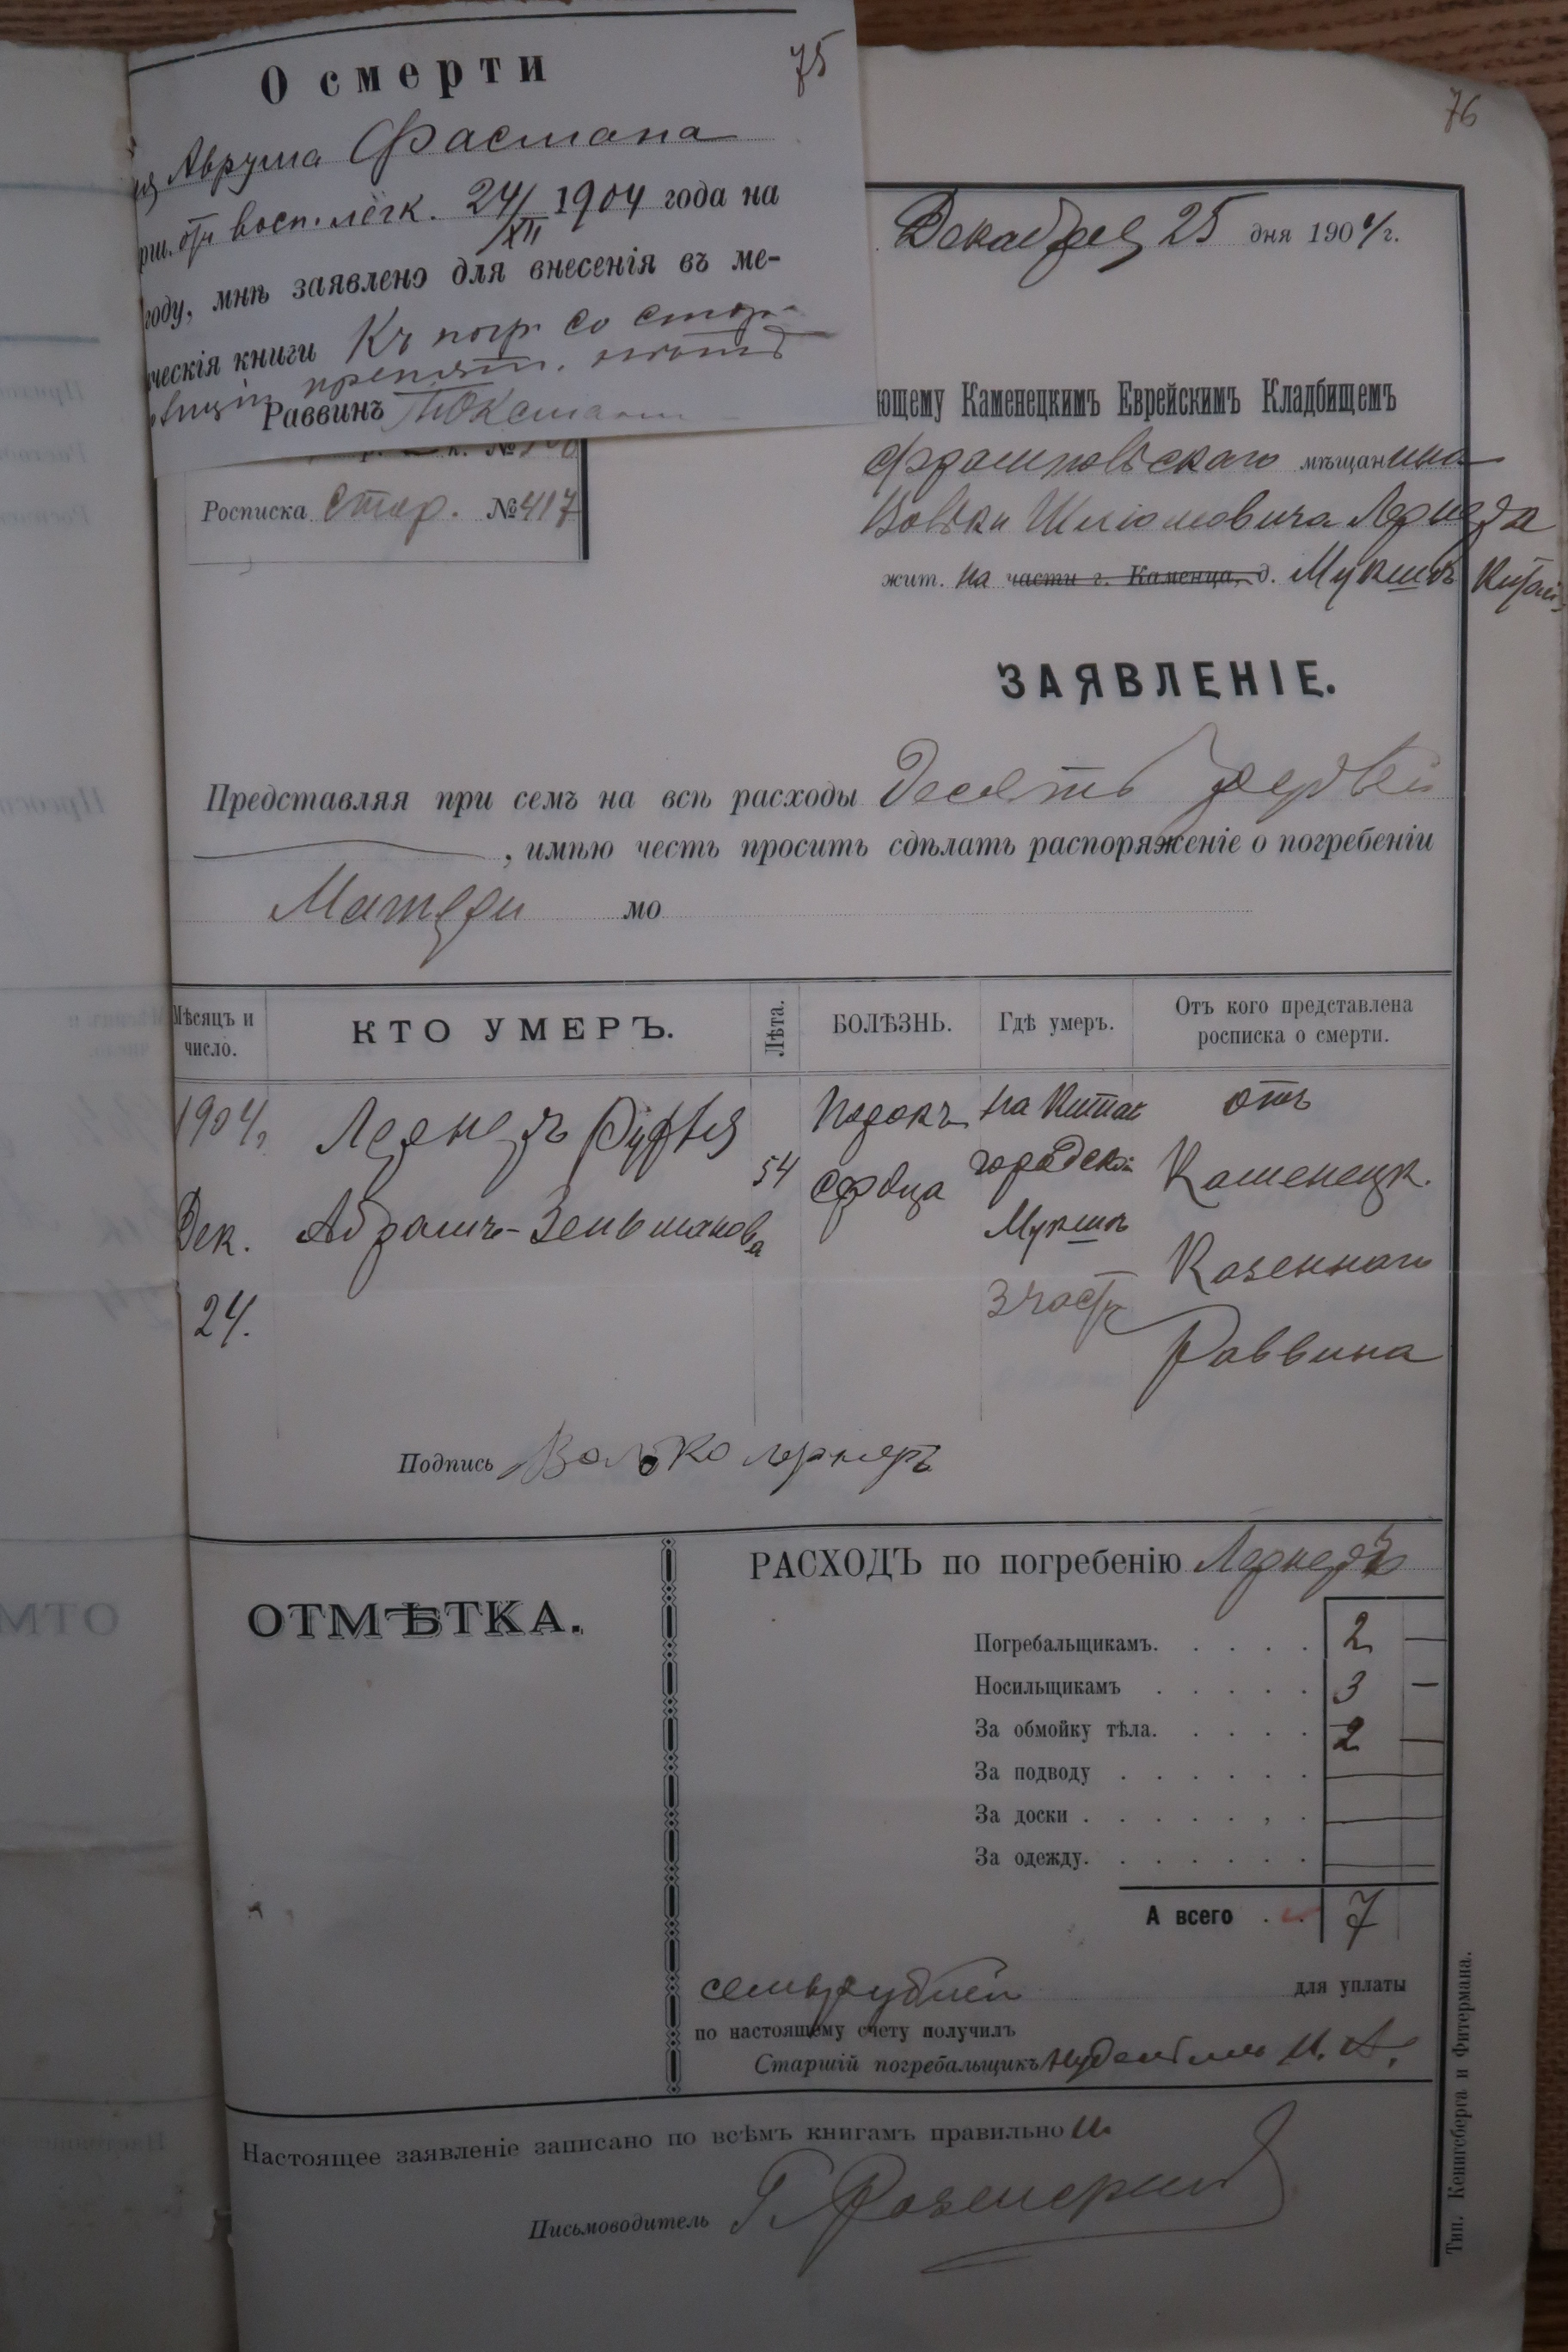 О смерти
75
Аврума Фасмана
от восп. легк. 24/XII 1904 года на
году, мнѣ заявлено для внесенія въ ме-
ческія книги Къ погр. со стор.
препят.
Раввинъ
76
Декабря 25 дня 1904 г.
ющему Каменецкимъ Еврейскимъ Кладбищемъ
Росписка Стар. № 417
мѣщанина
Вольки Шлiомовича Лернера
жит. на части г. Каменца, д. Мукшѣ Китай
ЗАЯВЛЕНІЕ.
Представляя при семъ на всѣ расходы Десять рублей
, имѣю честь просить сдѣлать распоряженіе о погребеніи
Матери мо
Мѣсяцъ и число.
КТО УМЕРЪ.
Лѣта.
БОЛѢЗНЬ.
Гдѣ умеръ.
Отъ кого представлена росписка о смерти.
1904,
Дек.
24.
Лернеръ
Абрамъ-Зельманова
54
Порокъ
сердца
на Китай
городской
Мукшѣ
3 часть
отъ
Каменецк.
Казеннаго
Раввина
Подпись Волько лернеръ
ОТМѢТКА.
РАСХОДЪ по погребенію Лернеръ
Погребальщикамъ. . . . . 2 —
Носильщикамъ . . . . . 3 —
За обмойку тѣла. . . . . 2 —
За подводу . . . . . . —
За доски . . . . . . , . —
За одежду. . . . . . . —
А всего . . 7
семь рублей для уплаты
по настоящему счету получилъ
Старшій погребальщикъ
Настоящее заявленіе записано по всѣмъ книгамъ правильно
Письмоводитель
Тип. Кенигсберга и Фитермана.